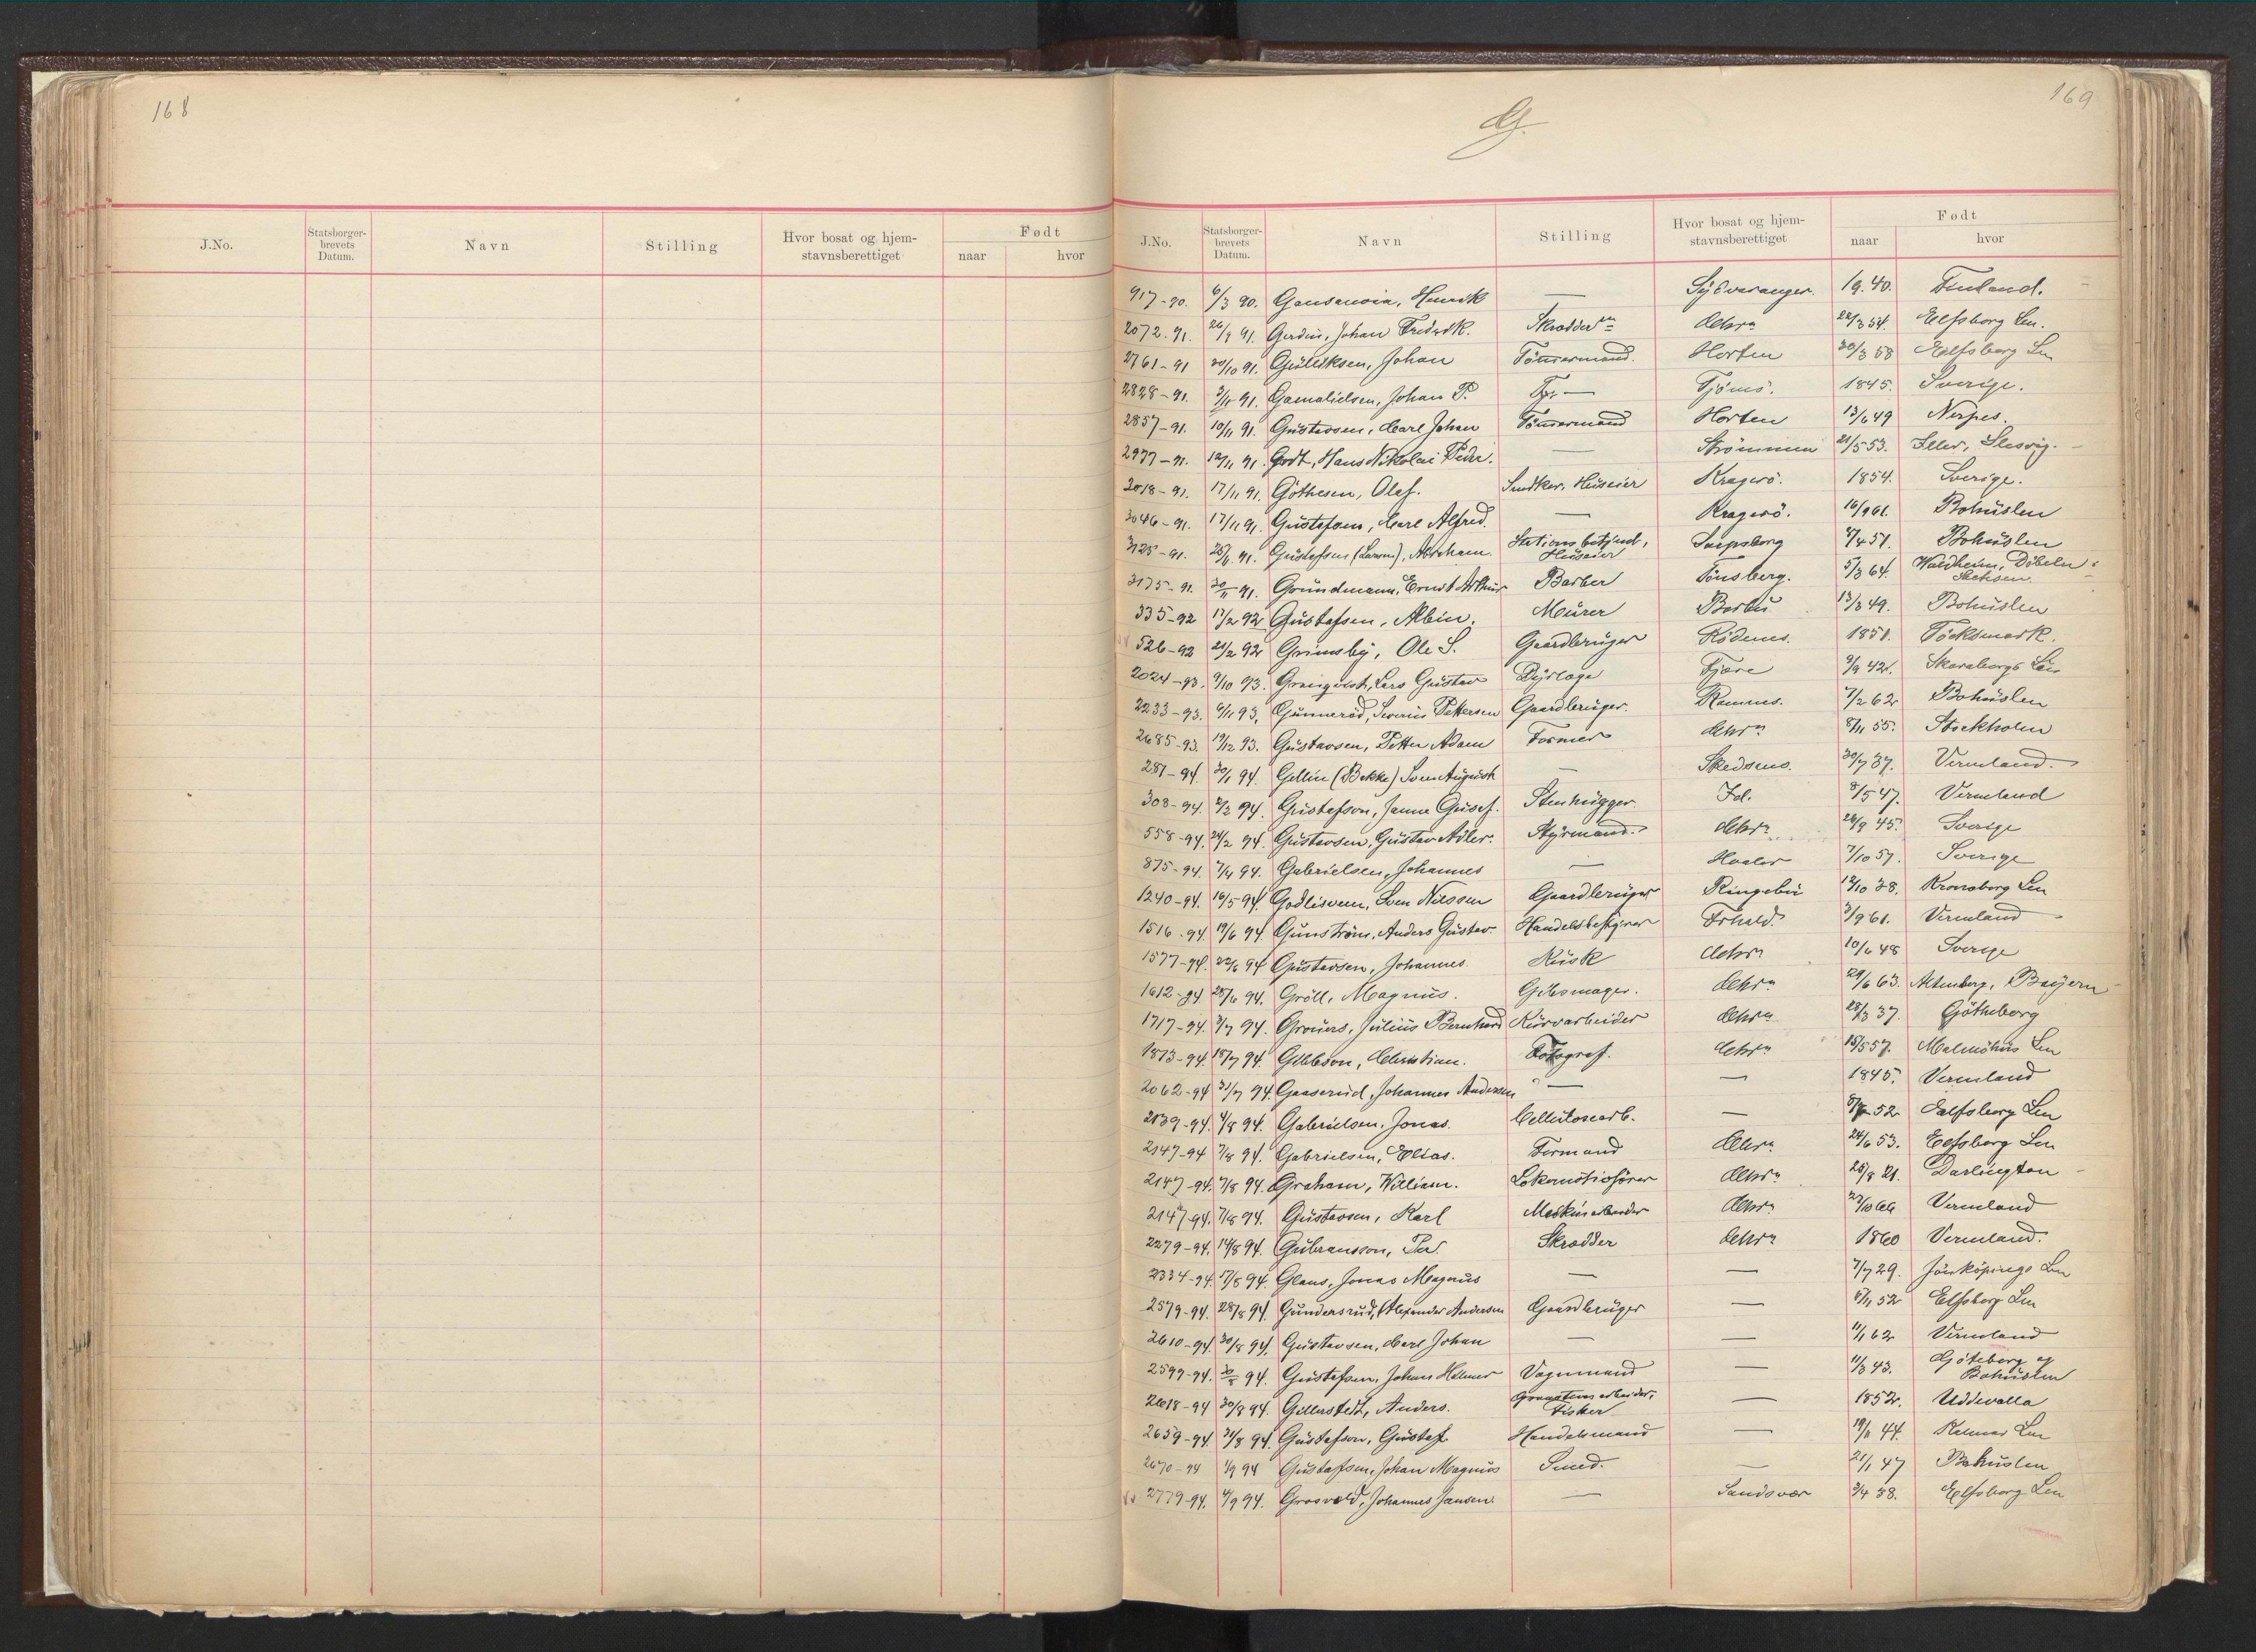 168
J.No.
Statsborger-
brevets
Datum.
Navn
Stilling
Hvor bosat og hjem-
stavnsberettiget
Født
naar
hvor
169
G.
J.No.
Statsborger-
brevets
Datum.
Navn
Stilling
Hvor bosat og hjem-
stavnsberettiget
Født
naar
hvor
917-90. 6/3 90. Henrik — Sydvaranger. 19.40. Finland.
2072.91. 91. Gerdin, Johan Fredrik. Skrædder Chra 22/3 54. Elfsborg Len.
2761-91 30/10 91. Gulliksen, Johan Tömmermand. Horten 30/3 58 Elfsborg Len
2828-91. 3/11 91. Gamalielsen, Johan P. — Tjømø. 1845. Sverige.
2857-91. 10/11 91. Gustavsen, Carl Johan Tömmermand Horten 13/6 49 Nerpes.
2977-91. 12/11 91. Godt, Hans Nikolai Peder. — Strömmen 21/5 53. Slesvig.
3018-91. 17/11 91. Göthesen, Olaf. Snedker, Huseier Kragerö. 1854. Sverige.
3046-91. 17/11 91. Gustafsen, Carl Alfred. — Kragerö. 16/9 61. Bohuslen
3125-91. 25/11 91. Gustafsen (Larsen), Abraham. Stationsbetjent, Huseier Sarpsborg 4 51. Bohuslen
3175-91. 30/11 91. Grundmann, Ernst Arthur Barber Tönsberg. 5/3 64. Waldheim, Döbeln i Sachsen.
335-92 17/2 92 Gustafsen, Albin. Murer Barbu 13/3 49. Bohuslen
526-92 29/2 92 Grimsby, Ole S. Gaardbruger Rödenes. 1851. Töcksmark.
2024-93. 9/10 93. Lars Gustav Dyrlæge Fjære 9/9 42. Skaraborgs Len
2233-93. 6/11 93. Gunneröd, Severin Pettersen Gaardbruger. Ramnes. 7/2 62 Bohuslen
2685-93. 19/12 93. Gustavsen, Petter Adam Former Chra 8/11 55. Stockholm
281-94. 30/1 94. Gellin (Bekke) Sven August — Skedsmo. 30/7 37. Vermland.
308-94. 2/2 94. Gustafson, Janne Gusaf. Stenhugger. Id. 8/5 47. Vermland
558-94. 24/2 94. Gustavsen, Gustav Adler. Styrmand. Chra 26/9 45. Sverige
875-94. 7/4 94. Gabrielsen, Johannes — Hvaler 7/10 57. Sverige
1240-94. 16/5 94. Godlisveen, Sven Nilssen Gaardbruger Ringebu 12/10 38. Kronoborg Len
1516-94. 19/6 94. Gunström, Anders Gustav Handelsbestyrer Frhald. 3/9 61. Vermland
1577-94. 22/6 94 Gustavsen, Johannes. Kusk Chra 10/6 48 Sverige
1612-94. 25/6 94. Gröll, Magnus. Gibsmager. Chra 29/6 63. Altenberg, Bayern
1717-94. 3/7 94. Grouers, Julius Bernhard Kurvarbeider Chra 28/3 37. Götheborg
1873-94. 18/7 94. Gibbson, Christian. Fotograf. Chra 18/5 57. Malmöhus Len
2062-94 31/7 94. Gaaserud, Johannes Andersen — — 1845. Vermland
2139-94. 4/8 94. Gabrielsen, Jonas. Cellulosearb. — 52 Elfsborg Len
2147-94 7/8 94. Gabrielsen, Elias. Formand Chra 24/6 53. Elfsborg Len
2147-94. 7/8 94. Graham, William. Lokomotivförer Chra 25/8 21. Darlington
2147-94. 7/8 94. Gustavsen, Karl Maskinarbeider Chra 27/10 66 Vermland
2279-94. 14/8 94. Gulbransson, Per. Skrædder Chra 1860 Vermland.
2334-94. 17/8 94. Glans, Jonas Magnus — — 7/7 29. Jönköpings Len
2579-94. 28/8 94. Gundersrud, Alexander Andersen Gaardbruger — 52 Elfsborg Len
2610-94. 30/8 94. Gustavsen, Carl Johan — — 11/1 62 Vermland
2599-94. 30/8 94. Gustafsen, Johan Helmer Vognmand — 11/3 43. Göteborg og Bohuslen
2618-94 30/8 94. Gillerstedt, Anders. Graastensarbeider, Fisker — 1852. Uddevalla
2659-94. 31/8 94. Gustafson, Gustaf Handelsmand — 44. Kalmar Len
2670-94 1/9 94 Gustafsen, Johan Magnus Smed. — 21/1 47 Bohuslen
2779-94. 4/9 94. Grosvold, Johannes Jansen. — Sandsvær 3/4 38. Elfsborg Len